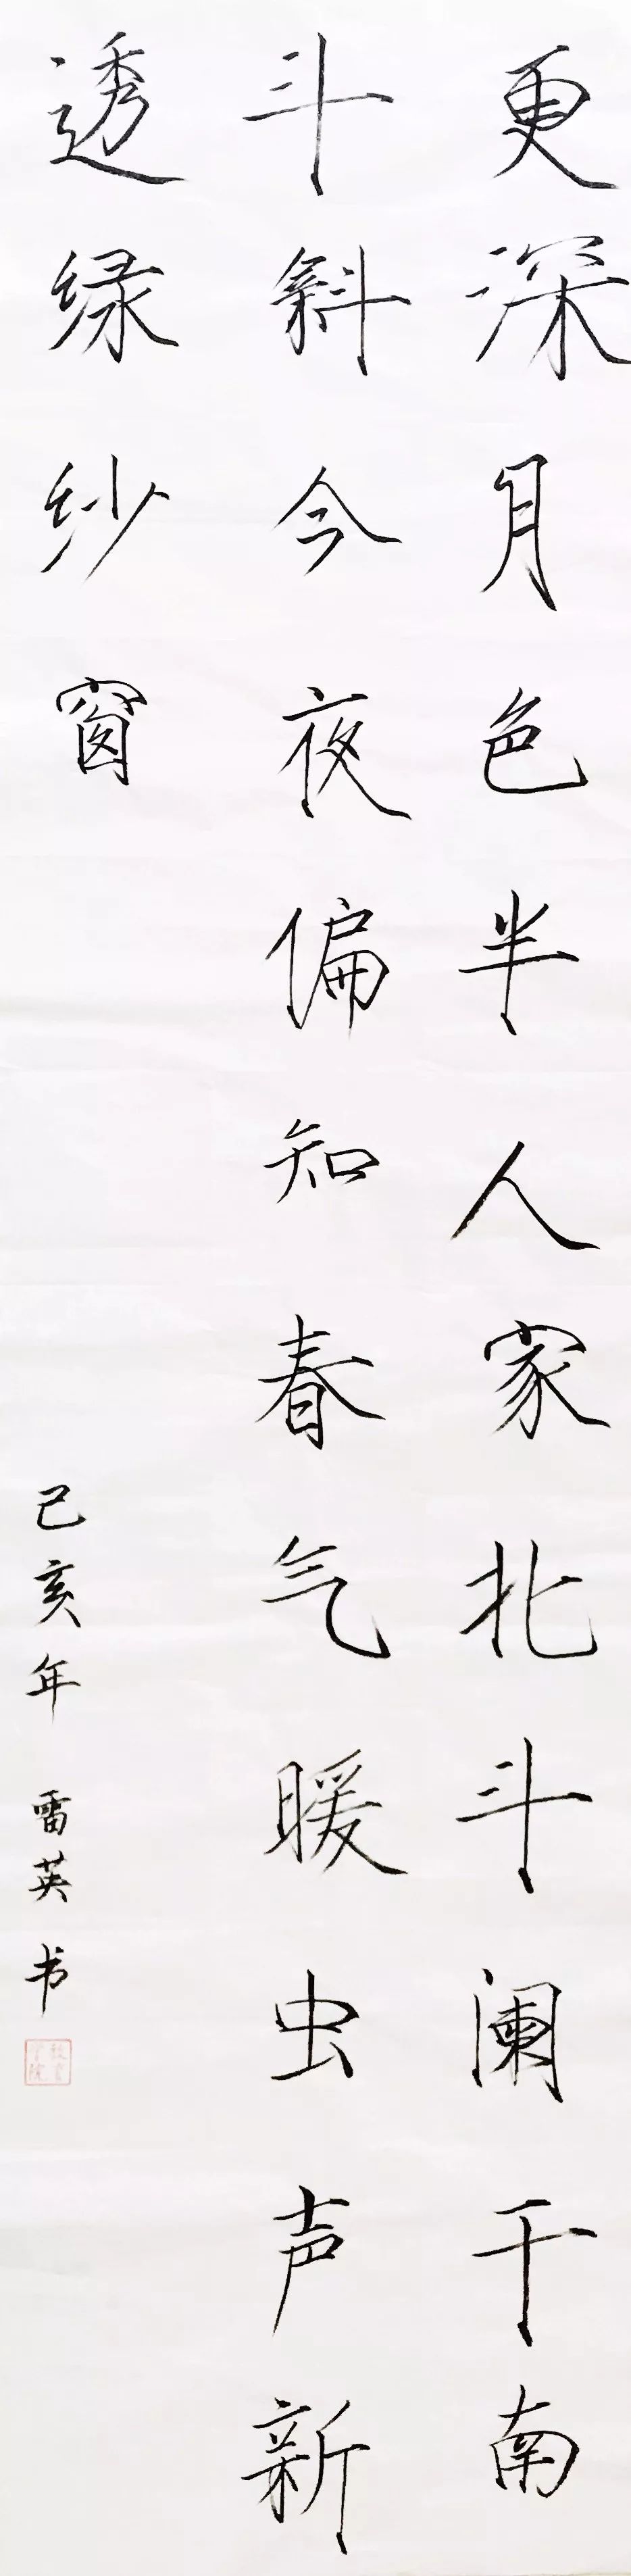 更深月色半人家北斗阑干南
斗斜今夜偏知春气暖虫声新
透绿纱窗
己亥年 雷英书